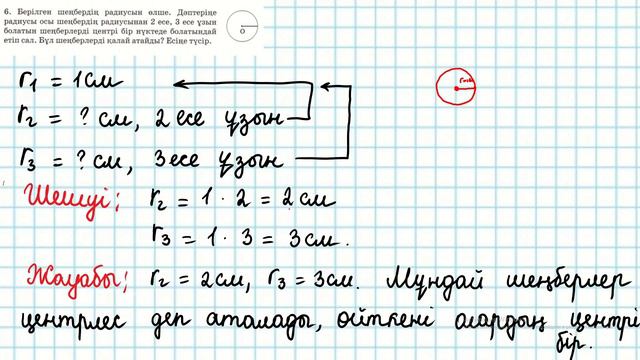 6. Берілген шеңбердің радиусын өлше. Дәптеріңе
радиусы осы шеңбердің радиусынан 2 есе, 3 есе ұзын
болатын шеңберлерді центрі бір нүктеде болатындай
етіп сал. Бұл шеңберлерді қалай атайды? Есіңе түсір.
O
r₁ = 1 см
r₂ = ? см, 2 есе ұзын
r₃ = ? см, 3 есе ұзын
Шешуі;
r₂ = 1 · 2 = 2 см
r₃ = 1 · 3 = 3 см.
Жауабы;
r₂ = 2 см, r₃ = 3 см. Мұндай шеңберлер
центрлес деп аталады, өйткені олардың центрі
бір.